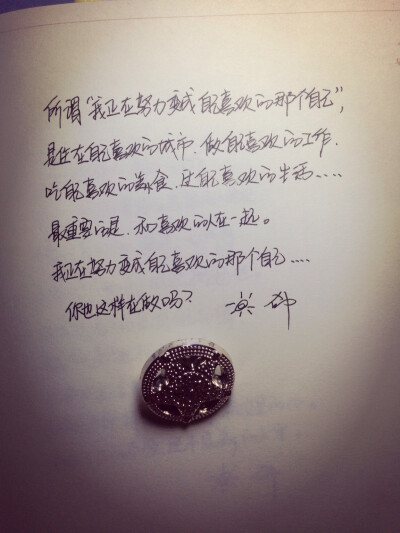 所谓“我正在努力变成自己喜欢的那个自己”，
是住在自己喜欢的城市.做自己喜欢的工作.
吃自己喜欢的美食.过自己喜欢的生活....
最重要的是.和喜欢的人在一起。
我正在努力变成自己喜欢的那个自己....
你也这样在做吗？